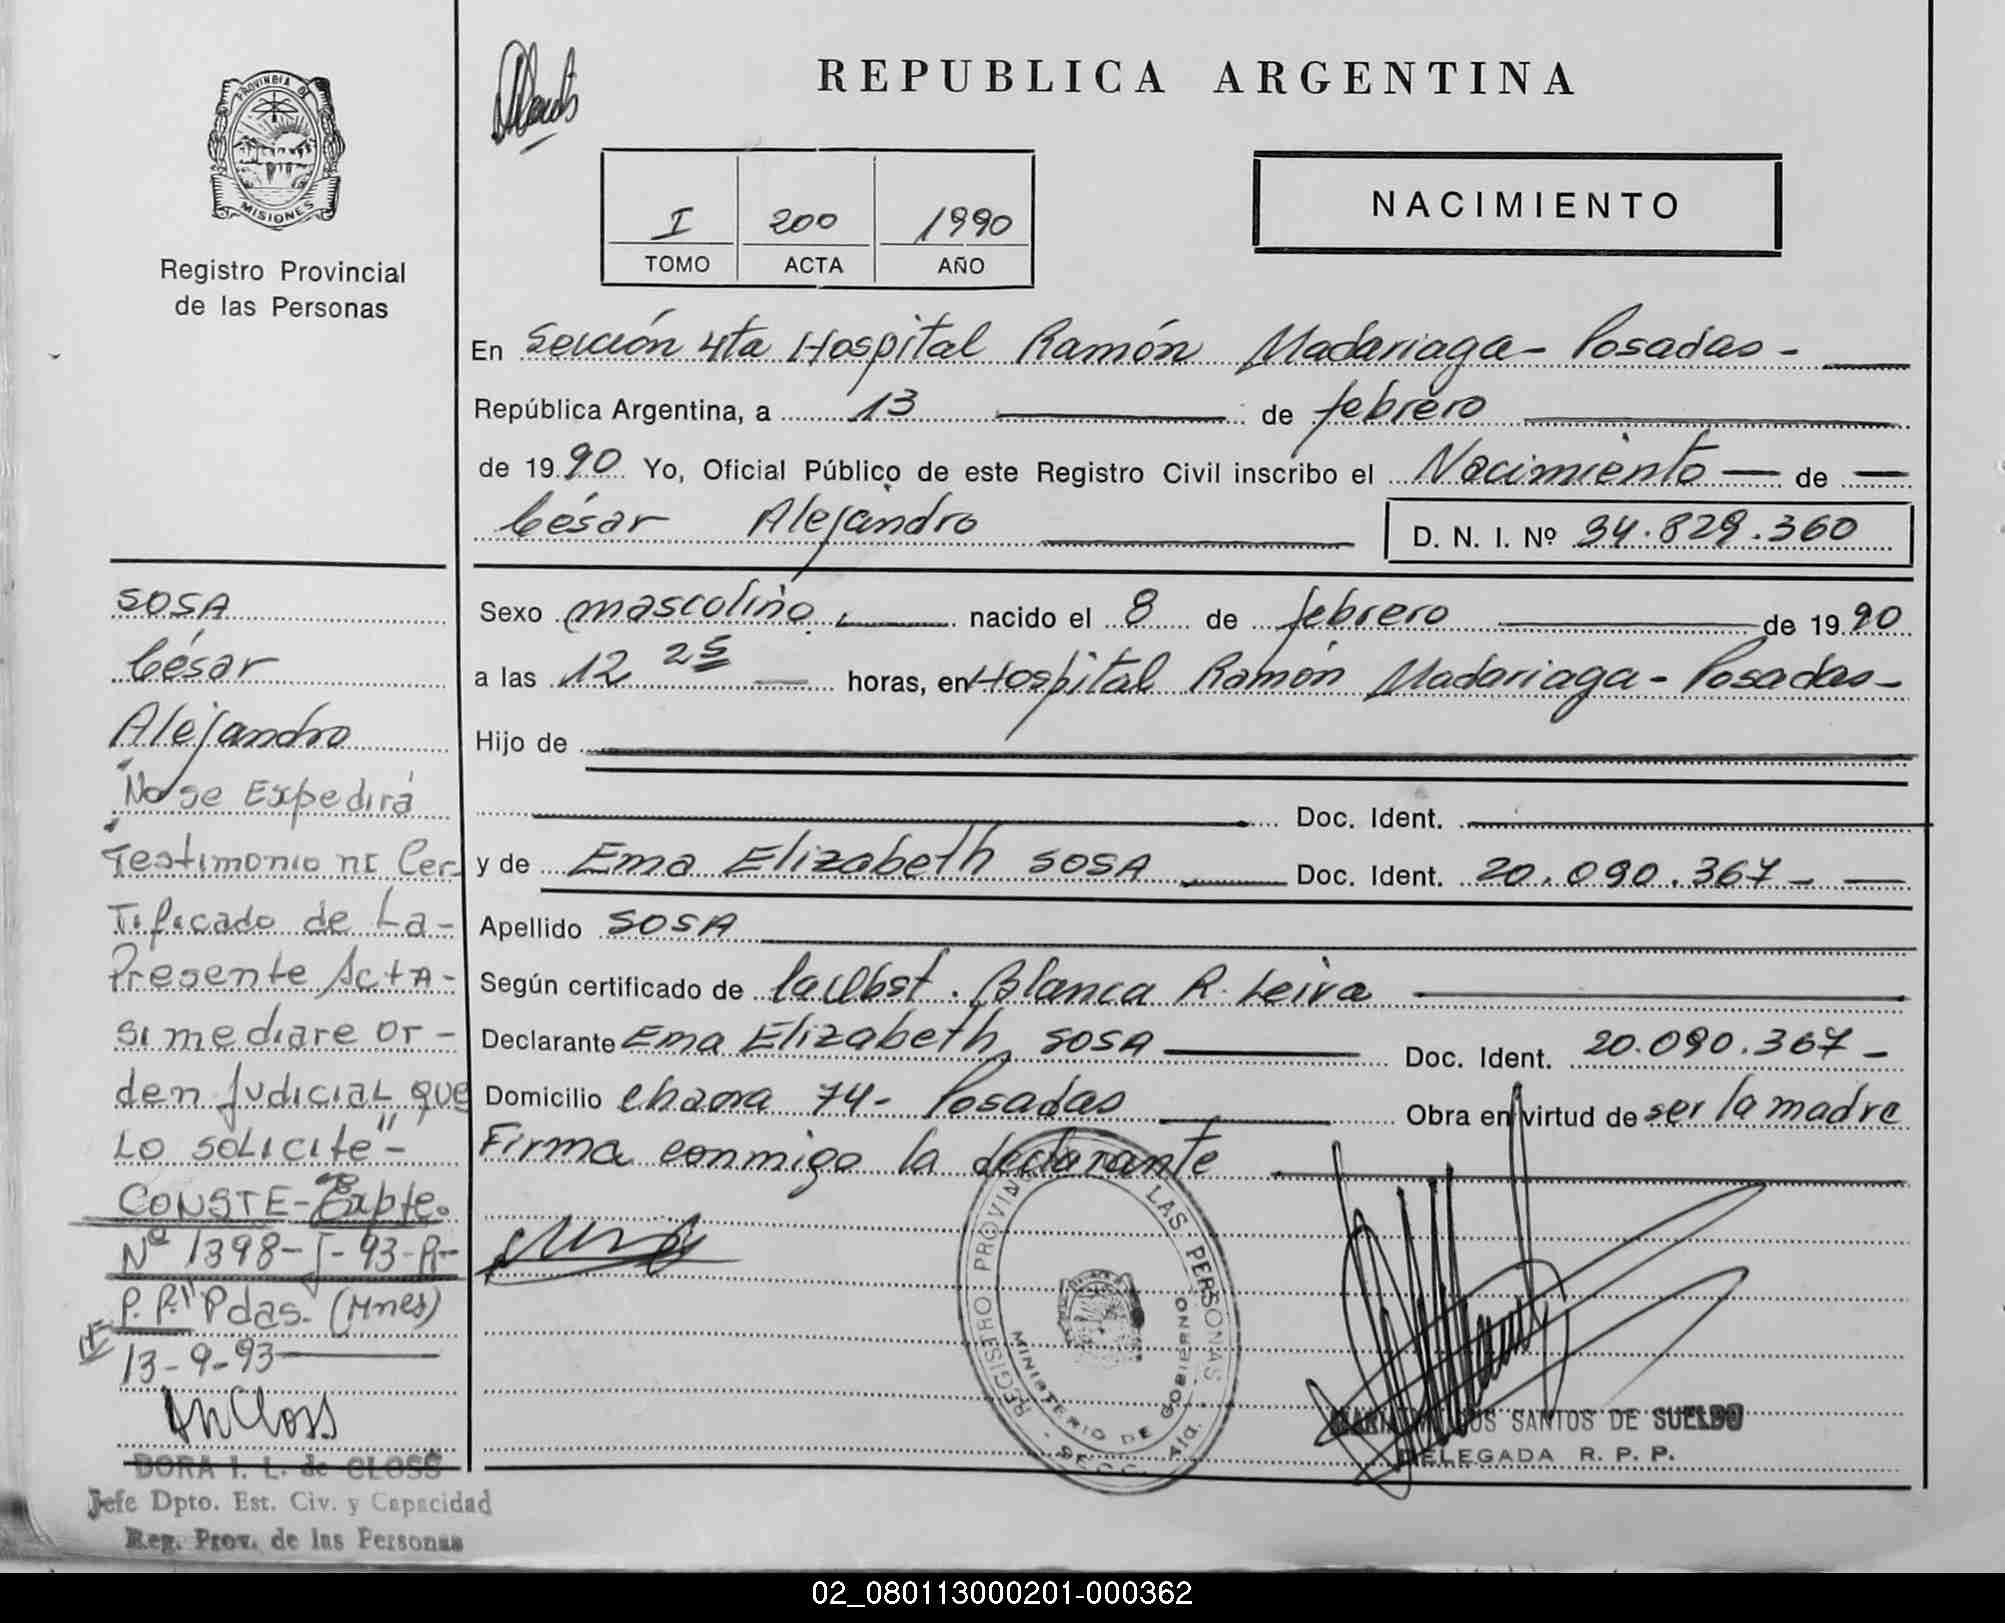 REPUBLICA ARGENTINA
PROVINCIA DE
MISIONES
Registro Provincial
de las Personas
I 200 1990
TOMO ACTA AÑO
NACIMIENTO
En Sección 4ta Hospital Ramón Madariaga - Posadas -
República Argentina, a 13 de febrero
de 1990 Yo, Oficial Público de este Registro Civil inscribo el Nacimiento de
César Alejandro D. N. I. Nº 34.829.360
Sexo masculino nacido el 8 de febrero de 1990
a las 12 25 horas, en Hospital Ramón Madariaga - Posadas -
Hijo de
Doc. Ident.
y de Ema Elizabeth SOSA Doc. Ident. 20.090.367 -
Apellido SOSA
Según certificado de la Obst. Blanca R. Leiva
Declarante Ema Elizabeth SOSA Doc. Ident. 20.090.367 -
Domicilio chacra 74 - Posadas Obra en virtud de ser la madre
Firma conmigo la declarante
SOSA
César
Alejandro
"No se Expedirá
Testimonio ni Cer-
tificado de La-
Presente Acta-
si mediare or-
den judicial que
Lo solicite"-
CONSTE- Expte.
Nº 1398-J-93-R-
R.P." Pdas. (Mnes)
13-9-93
DORA I. L. de CLOSS
Jefe Dpto. Est. Civ. y Capacidad
Reg. Prov. de las Personas
REGISTRO PROVINCIAL DE LAS PERSONAS
MINISTERIO DE GOBIERNO
SANTOS DE SUELDO
DELEGADA R. P. P.
02_080113000201-000362